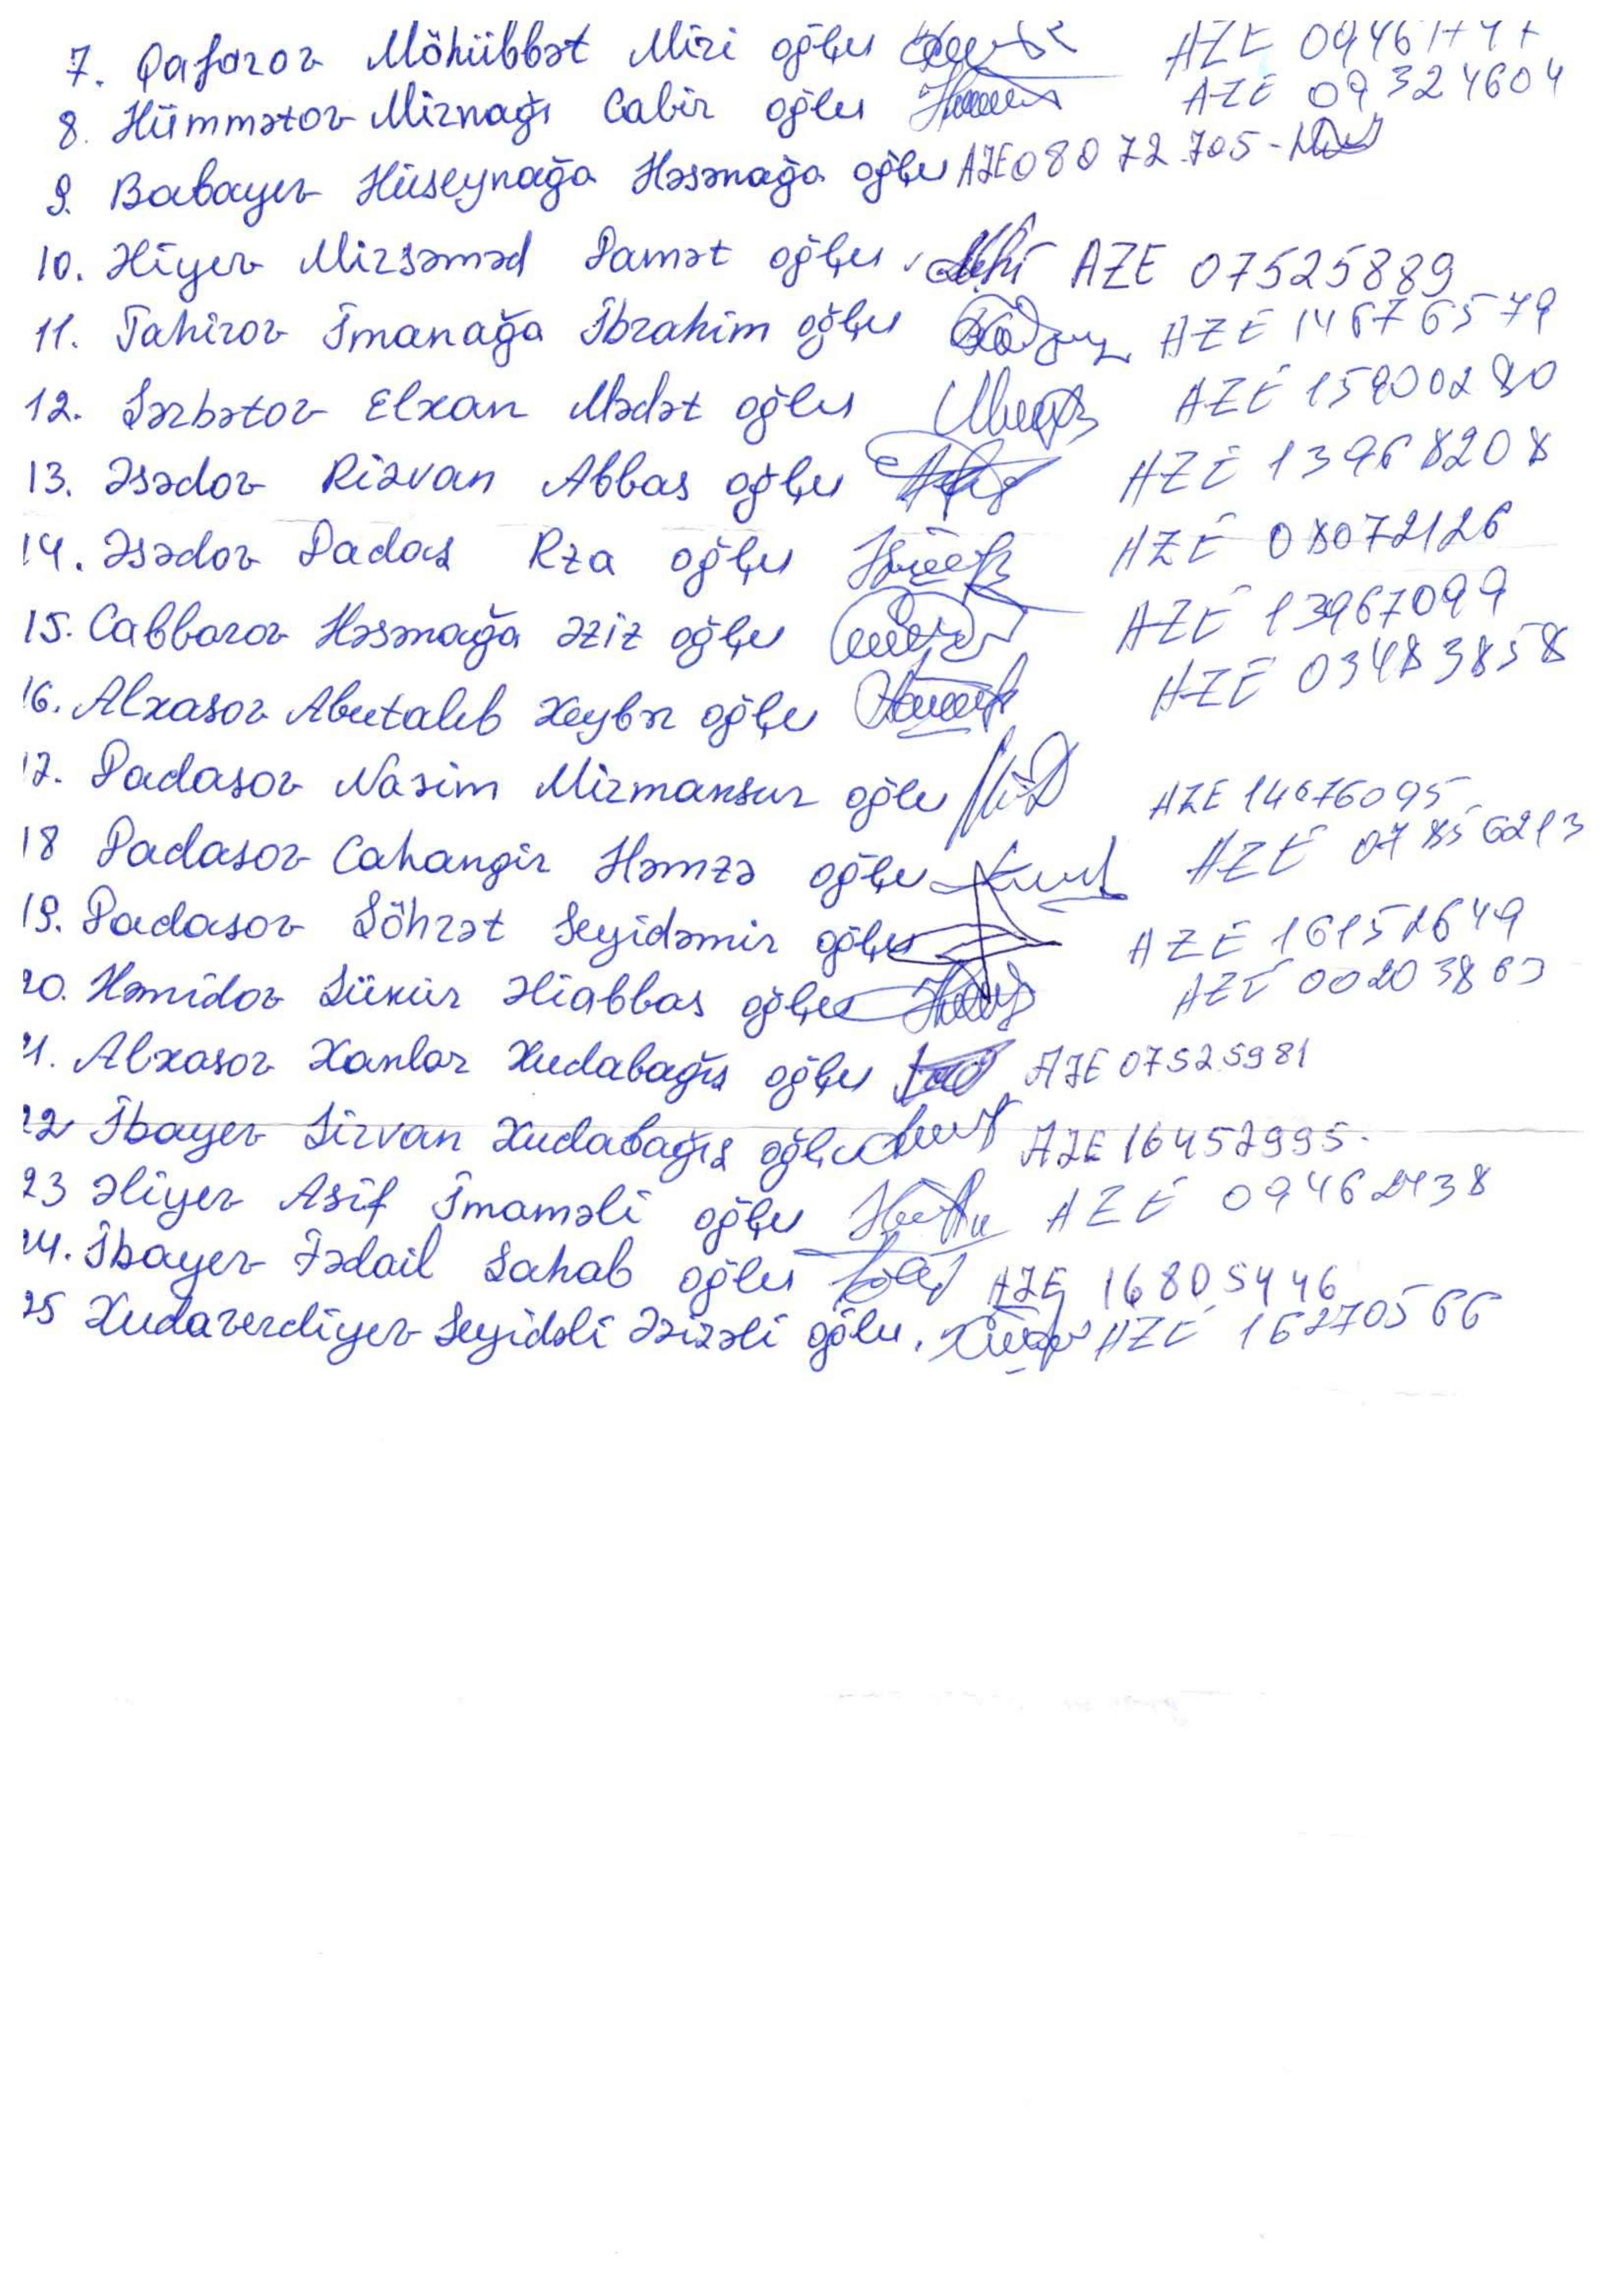 7. Qafarov Möhübbət Miri oğlu AZE
8. Hümmətov Mirnağı Cabir oğlu AZE 09324604
9. Babayev Hüseynağa Həsənağa oğlu AZE 08072705
10. Əliyev Mirsəməd Şamət oğlu AZE 07525889
11. Tahirov İmanağa İbrahim oğlu AZE 14676579
12. Şərbətov Elxan Mədət oğlu AZE 15900280
13. Əsədov Rizvan Abbas oğlu AZE 13968208
14. Əsədov Dadaş Rza oğlu AZE 08072126
15. Cabbarov Həsənağa Əziz oğlu AZE 13967099
16. Alxasov Abutalıb Xeybər oğlu AZE 03483858
17. Dadaşov Nazim Mirmansur oğlu AZE 14676095
18 Dadaşov Cahangir Həmzə oğlu AZE 07856213
19. Dadaşov Şöhrət Seyidəmir oğlu AZE 16152649
20. Həmidov Şükür Əliabbas oğlu AZE 00203863
21. Alxasov Xanlar Xudabağış oğlu AZE 07525981
22 İbayev Şirvan Xudabağış oğlu AZE 16452995
23 Əliyev Asif İmaməli oğlu AZE 09462438
24. İbayev Fədail Sahab oğlu AZE 16805446
25 Xudaverdiyev Seyidəli Əzizəli oğlu. AZE 16270566